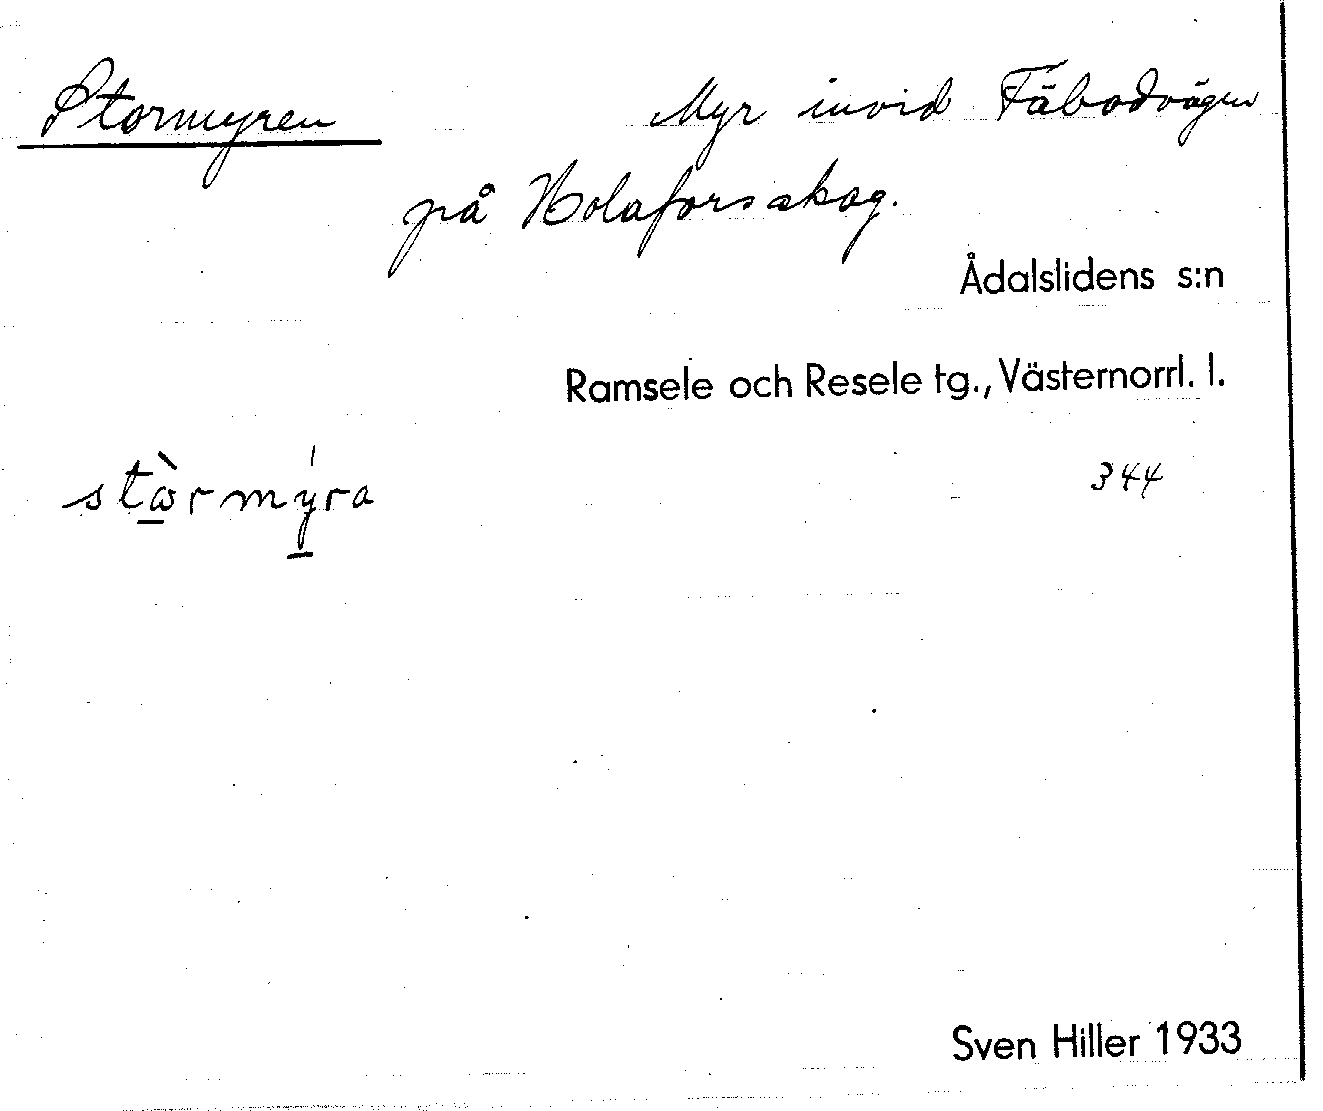 Stormyren Myr invid Fäbodvägen
på Holaforsskog.
Ådalslidens s:n
Ramsele och Resele tg., Västernorrl. l.
stὼrmýra 344
Sven Hiller 1933